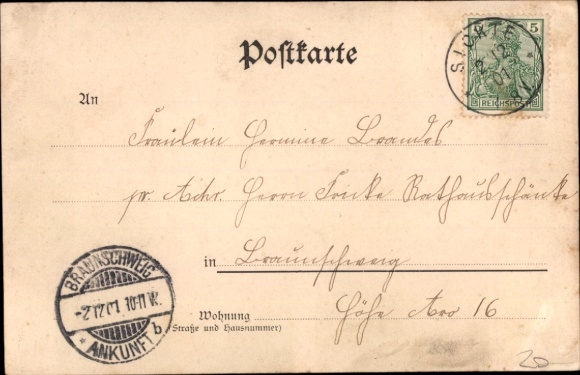 Postkarte
5
SICKTE
2 12
01
REICHSPOST
An
Fräulein Hermine Brandes
pr. Adr. Herrn Fricke Rathausschänke
in Braunschweig
Wohnung
(Straße und Hausnummer)
Höhe No 16
BRAUNSCHWEIG
-2 12 01 10-11 V.
b
* ANKUNFT
20